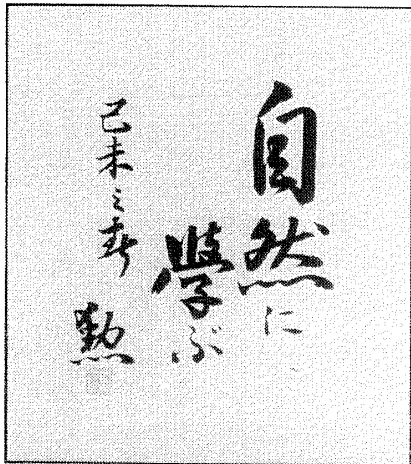 自然に
學ぶ
己未之春
勲